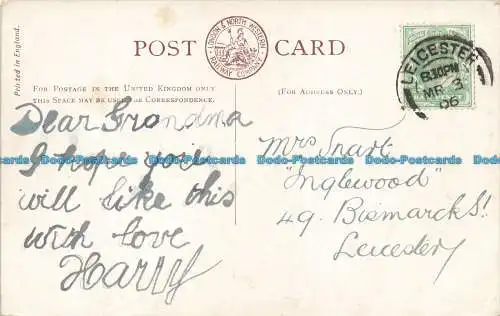 Printed in England.
POST CARD
LONDON & NORTH WESTERN RAILWAY COMPANY
LEICESTER
8.30PM
MR 3
06
FOR POSTAGE IN THE UNITED KINGDOM ONLY
THIS SPACE MAY BE USED FOR CORRESPONDENCE.
(FOR ADDRESS ONLY.)
Dear Grandma
I hope you
will like this
with love
Harry
Mrs
"Inglewood"
49. Bismarck St
Leicester
Dodo-Postcards Dodo-Postcards Dodo-Postcards Dodo-Postcards Dodo-Postcards